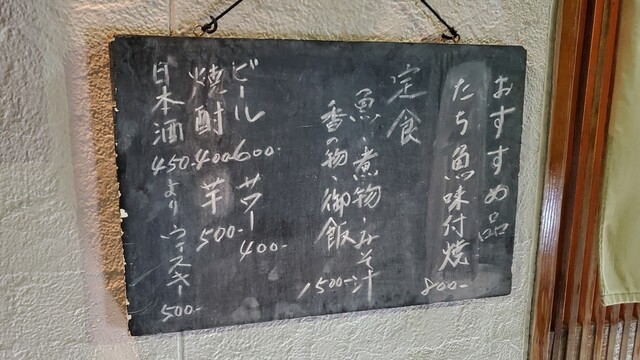 おすすめ品
たち魚味付焼
800-
定食
魚・煮物・みそ汁
香の物・御飯
1500-
ビール
600-
サワー
400-
焼酎
400-
芋
500-
日本酒
450-より
ウィスキー
500-